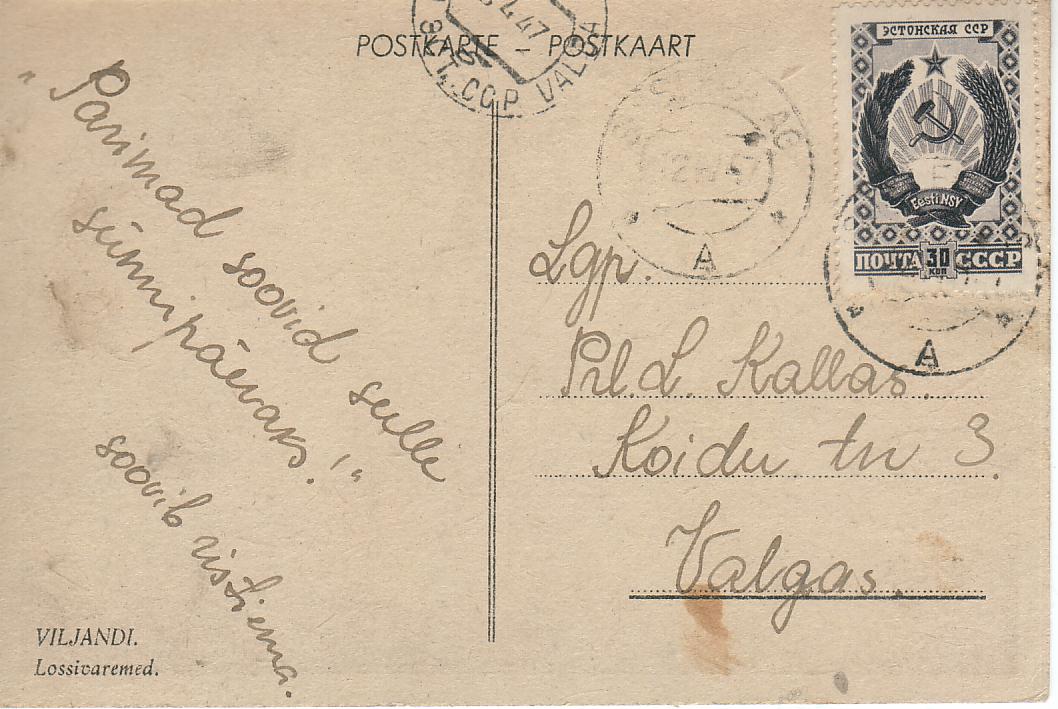 POSTKARTE – POSTKAART
Э.С.С.Р. VALGA
4.47
ЭСТОНСКАЯ ССР
Eesti NSV
ПОЧТА 30 КОП СССР
A
A
„Parimad soovid sulle
sünnipäevaks!“
soovib ristiema.
Lgp.
Prl. L. Kallas.
Koidu tn 3.
Valgas.
VILJANDI.
Lossivaremed.